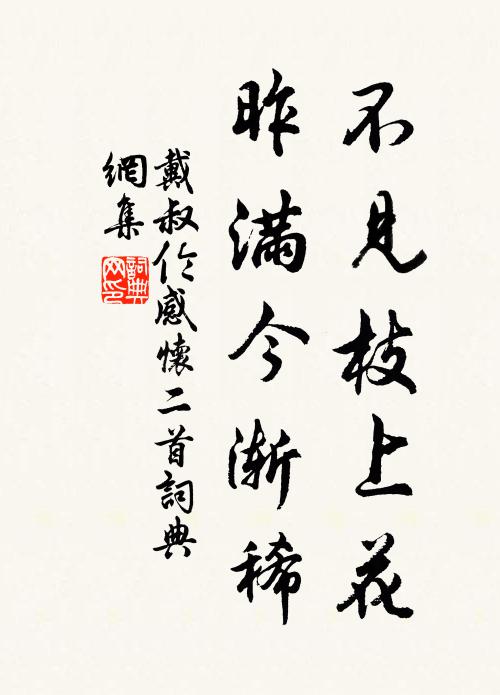 不見枝上花
昨滿今漸稀
戴叔伦感懷二首詞典
網集
詞典
网印